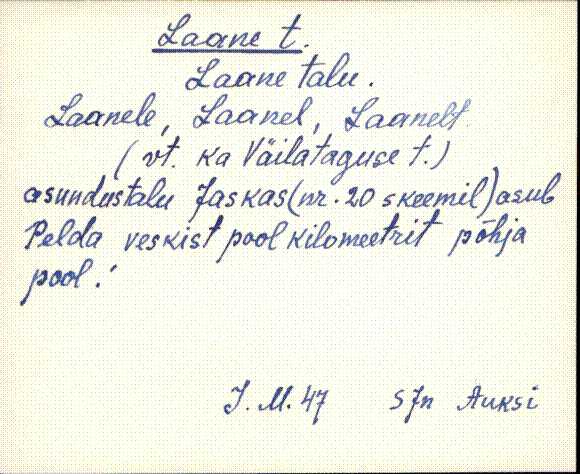 Laane t.
Laane talu.
Laanele, Laanel, Laanelt.
(vt. ka Väilataguse t.)
asundustalu Jaskas (nr. 20 skeemil) asub
Pelda veskist pool kilomeetrit põhja
pool.
J. M. 47 SJn Auksi